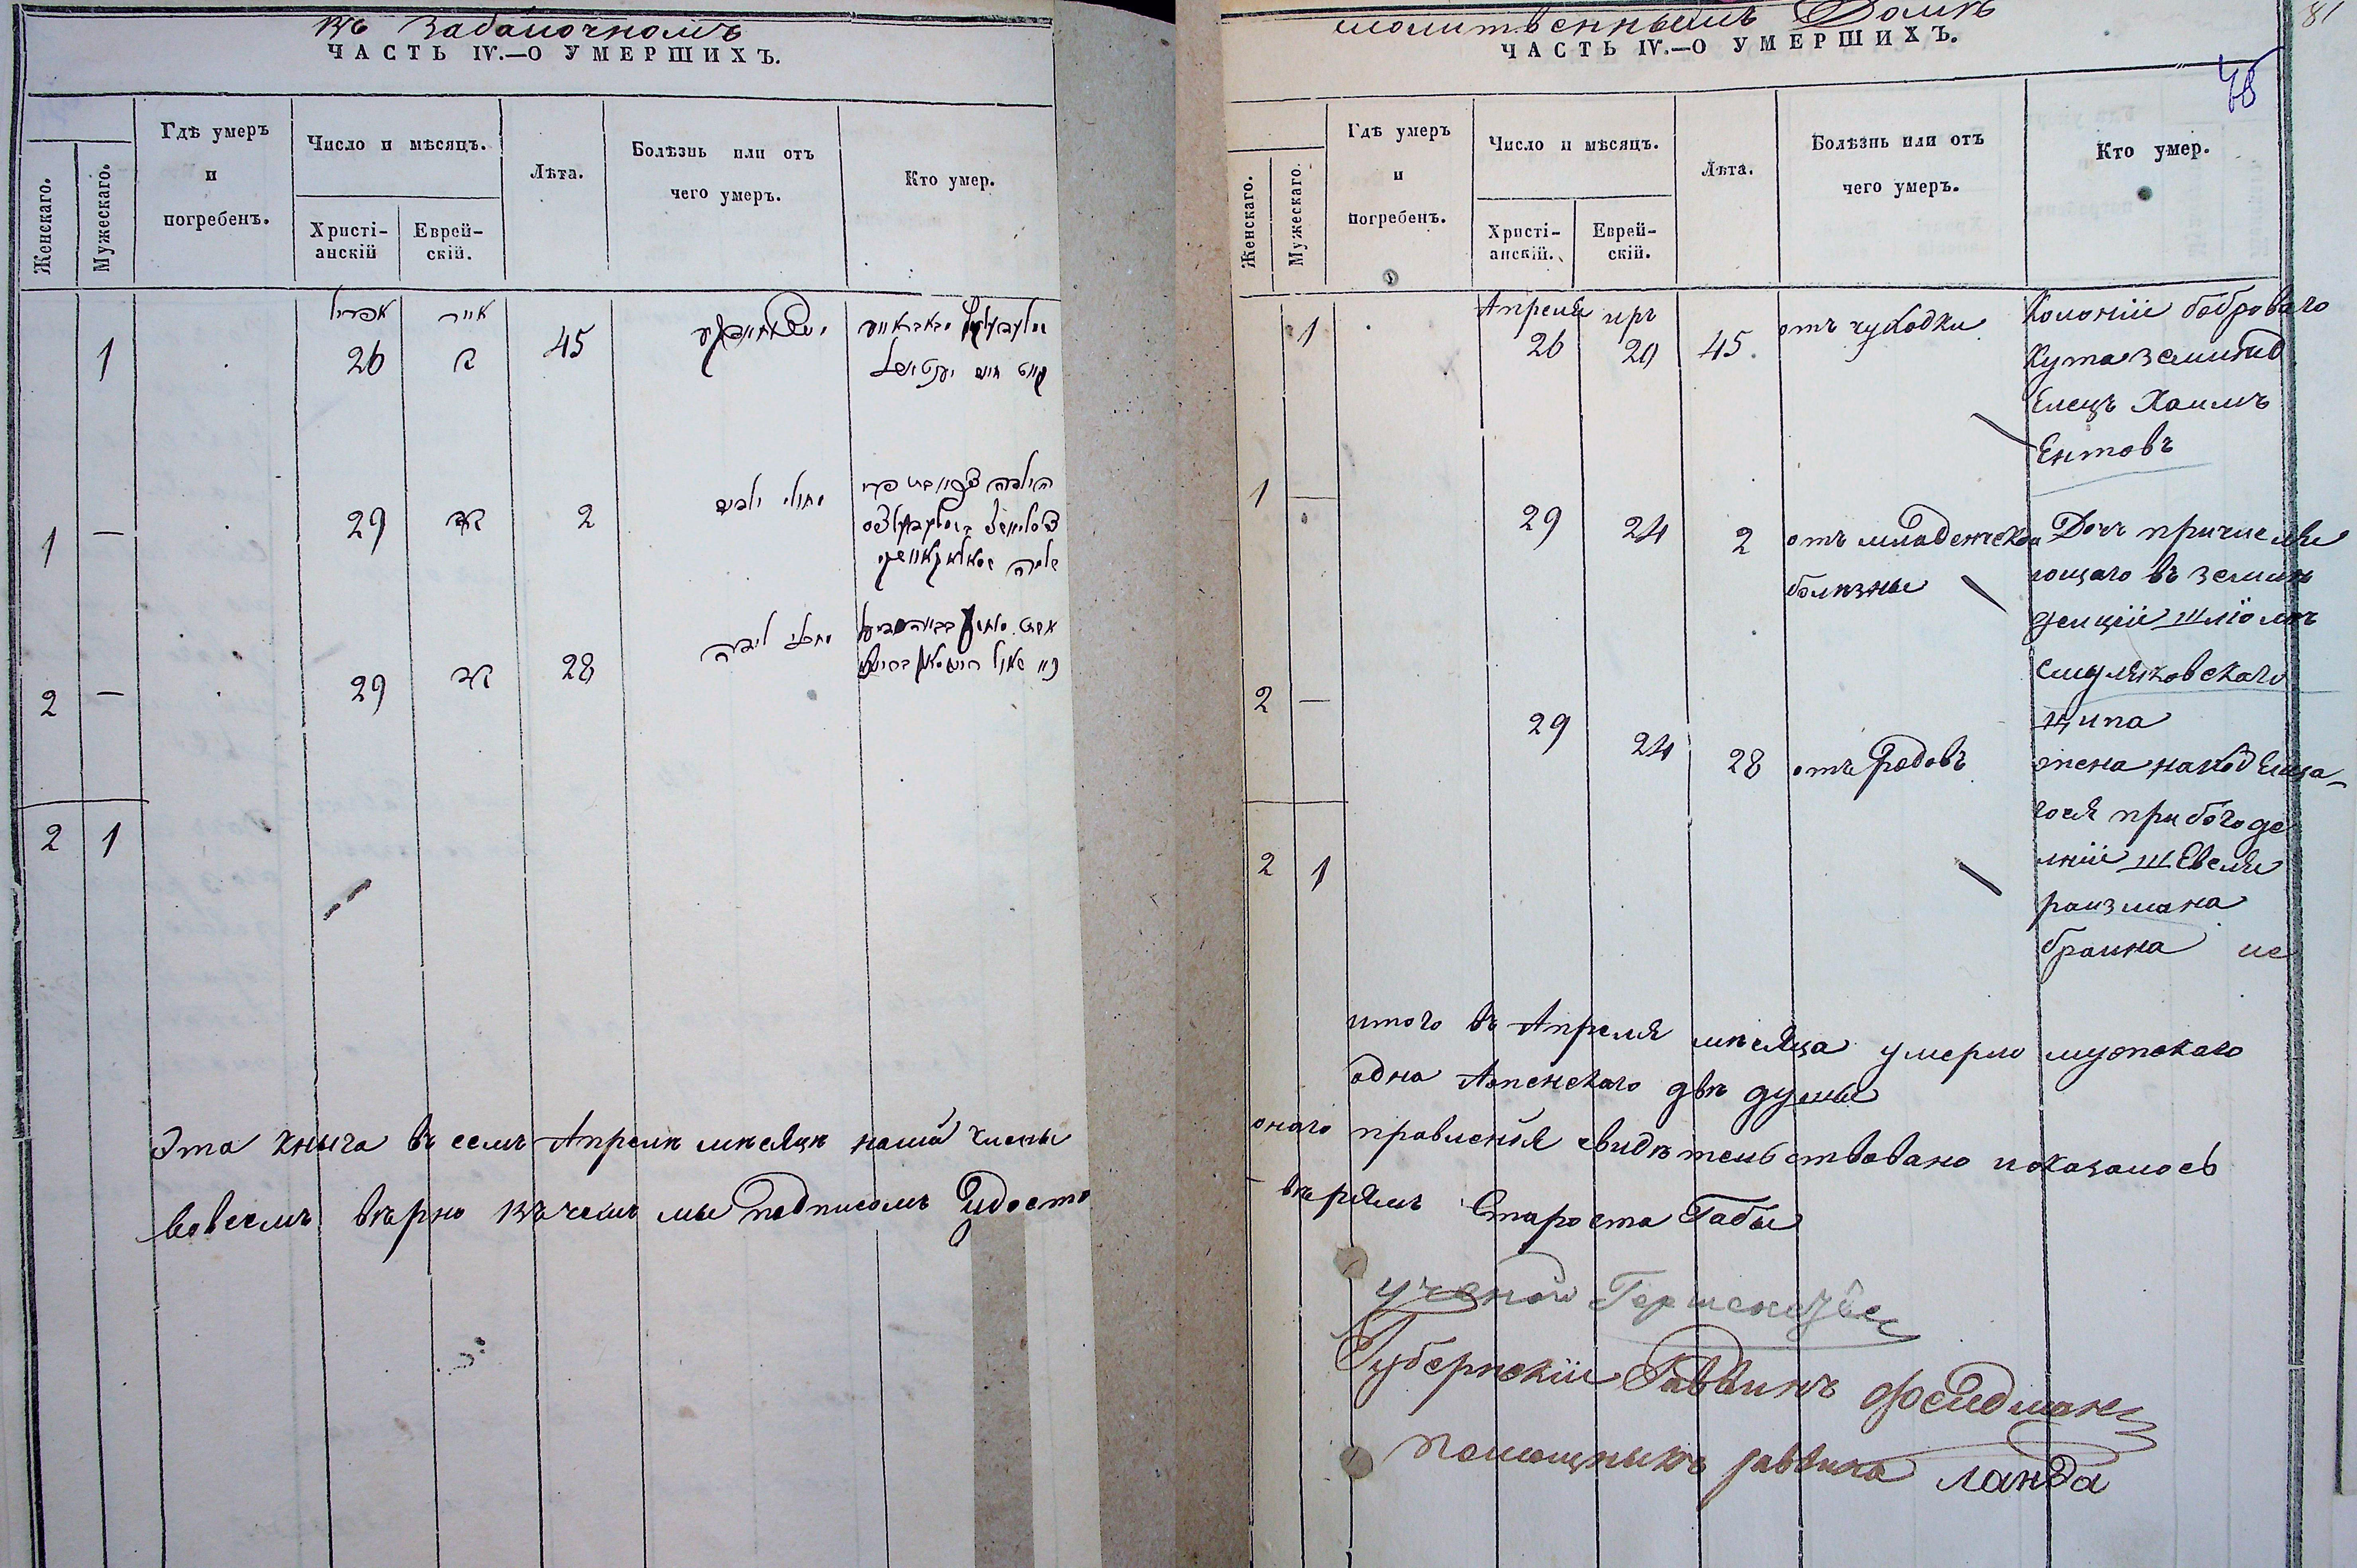 въ Забалочномъ
ЧАСТЬ IV.—О УМЕРШИХЪ.
Женскаго.
Мужескаго.
Гдѣ умеръ
и
погребенъ.
Число и мѣсяцъ.
Христі-
анскій
Еврей-
скій.
Лѣта.
Болѣзнь или отъ
чего умеръ.
Кто умер.
אפריל אייר
1 26 כ 45
1 — 29 כד 2 חולי ילדים
2 — 29 כד 28 חבלי לידה
2 1
Эта книга въ семъ Апрелѣ мѣсяцѣ нашй члены
вовсемъ вѣрно въ чемъ мы подписомъ Удосто
молитвенныимъ Домѣ
ЧАСТЬ IV.—О УМЕРШИХЪ.
81
Женскаго.
Мужескаго.
Гдѣ умеръ
и
погребенъ.
Число и мѣсяцъ.
Христі-
анскій.
Еврей-
скій.
Лѣта.
Болѣзнь или отъ
чего умеръ.
Кто умер.
Апреля иръ
1 26 20 45 отъ чуходки Колоніи боброваго
Кута землид
Елецъ Хаимъ
Ентовъ
1 — 29 24 2 отъ младенчекой Дочъ причисля
болѣзны ющаго въ землѣ
делціи Шліомъ
смуляковскаго
ципа
2 — 29 24 28 отъ Родовъ жена находЕлща-
гося при бого де
лніи ШЕвеля
раизмана
браина
2 1
итого въ Апреля мѣсяца умерло мужскаго
одна Женскаго двѣ душы
онаго правленія свидѣтельствовано показалось
вѣрямъ Староста Габы
ученой
Губернскіи Раввинъ Фелдман
Помощныкъ раввина Ланда